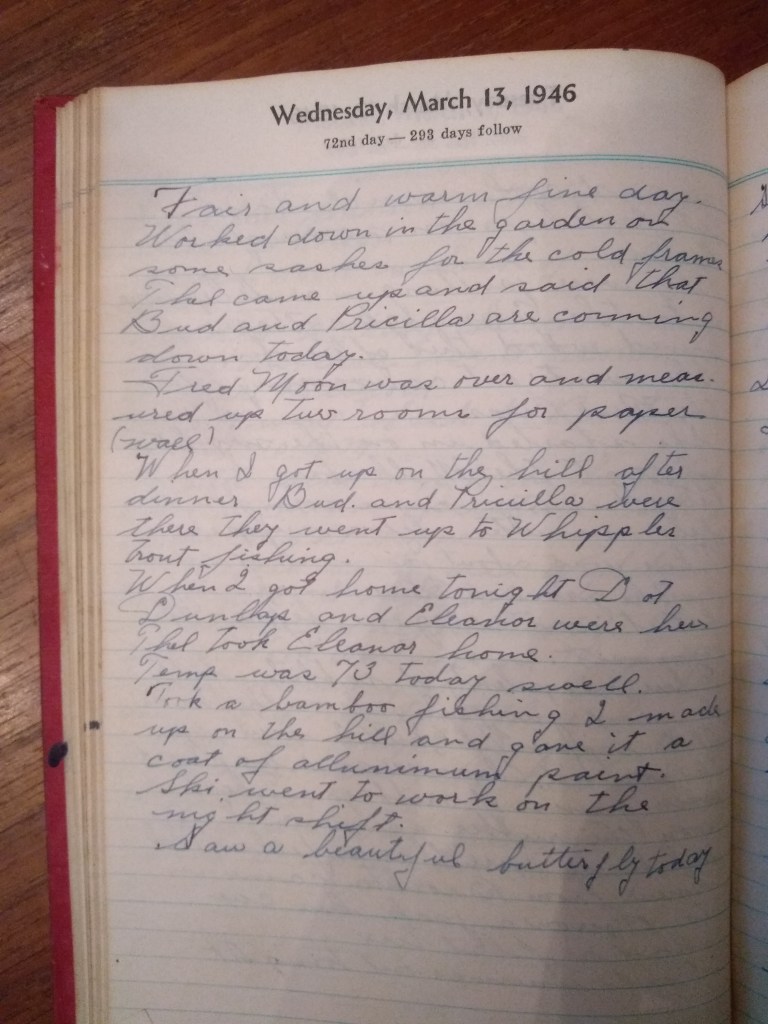 Wednesday, March 13, 1946
72nd day — 293 days follow
Fair and warm fine day.
Worked down in the garden on
some sashes for the cold frames
Thel came up and said that
Bud and Pricilla are comming
down today.
Fred Moon was over and meas-
ured up two rooms for paper
(wall)
When I got up on the hill after
dinner Bud. and Pricilla were
there they went up to Whipples
trout fishing.
When I got home tonight Dot
Dunlap and Eleanor were here
Thel took Eleanor home.
Temp was 73 today swell.
Took a bamboo fishing I made
up on the hill and gave it a
coat of allunimum paint.
Ski went to work on the
night shift.
Saw a beautyful butterfly today